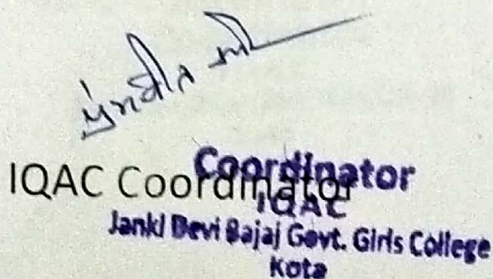 IQAC Coordinator
Coordinator
IQAC
Janki Devi Bajaj Govt. Girls College
Kota